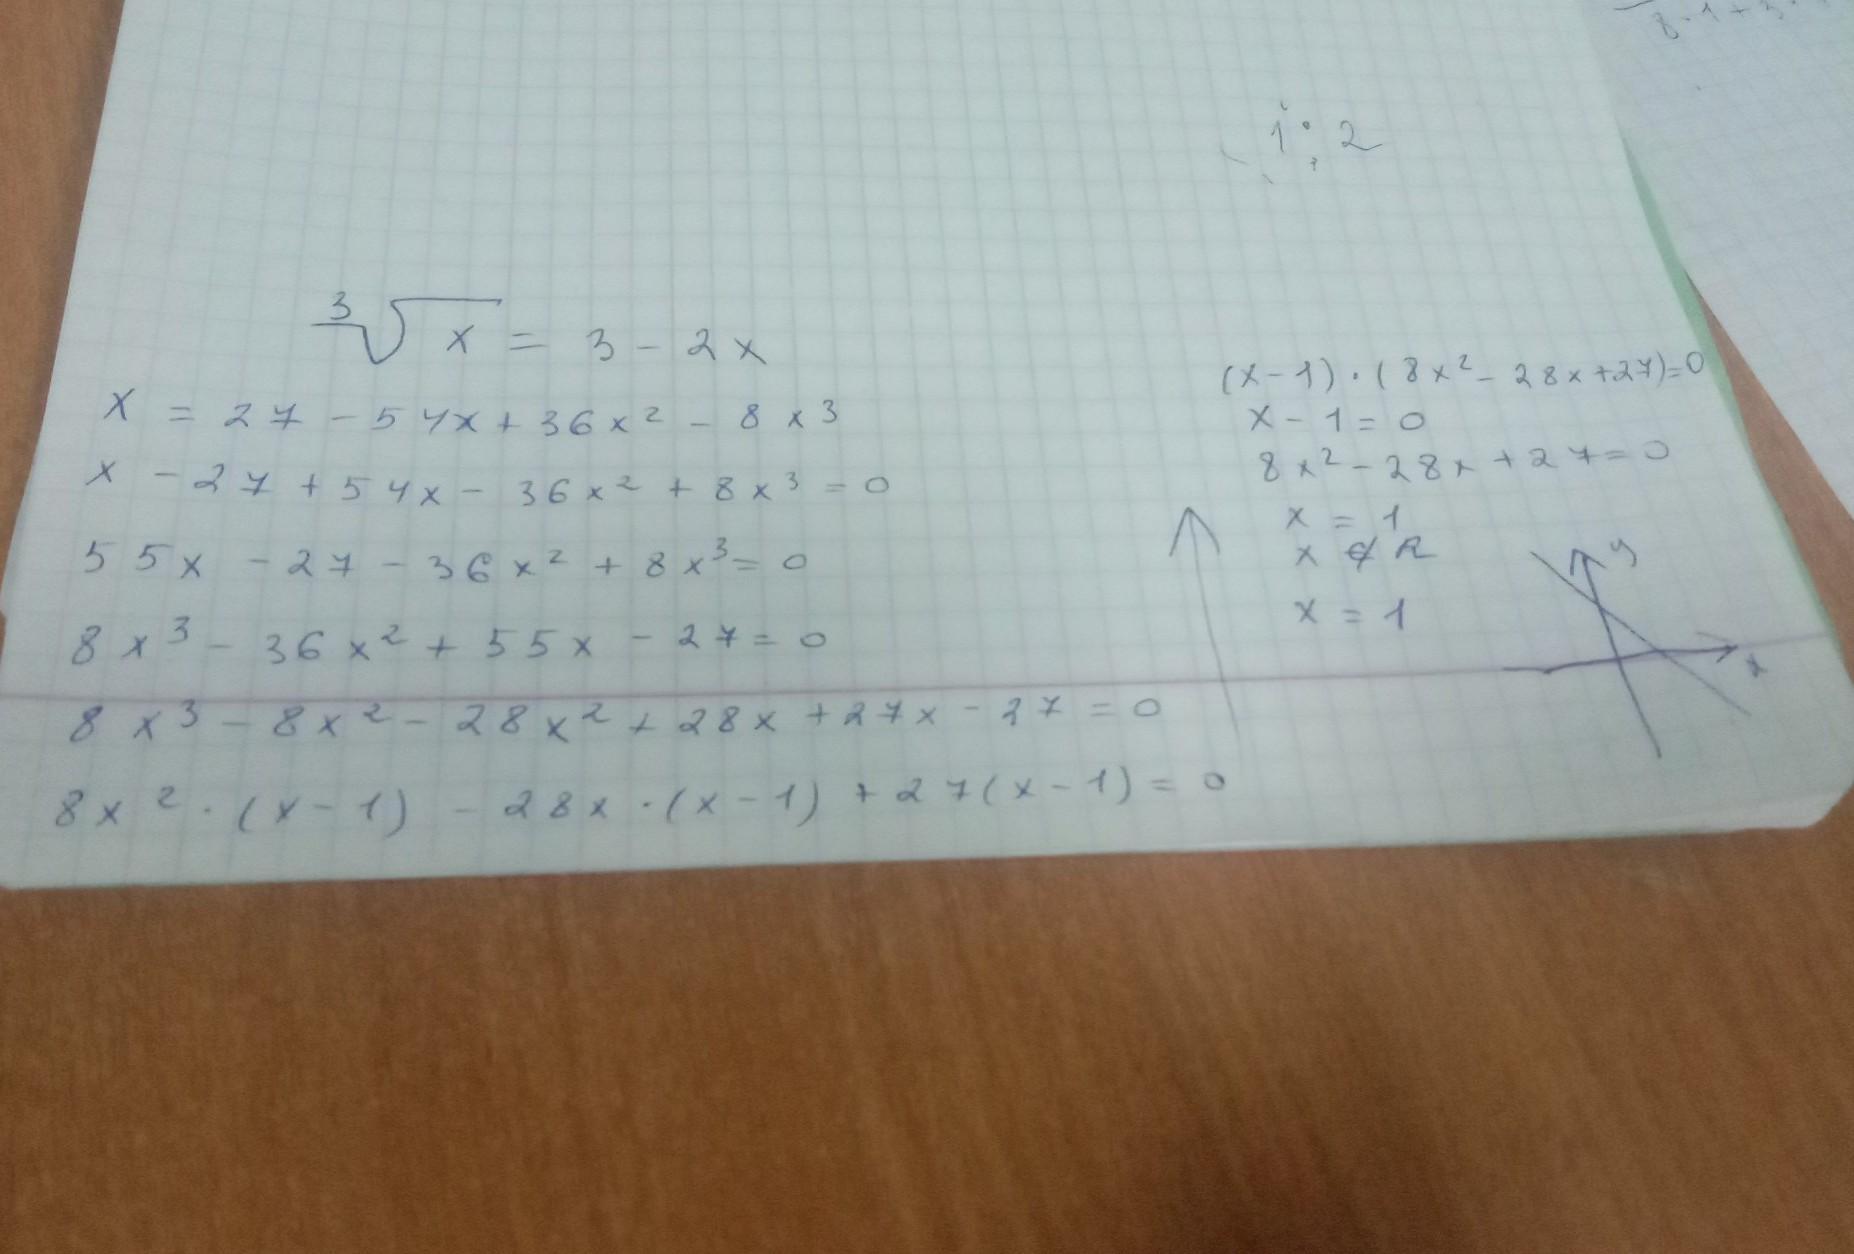 8·1+3·
1:2
³√x = 3 - 2x
x = 27 - 54x + 36x² - 8x³
x - 27 + 54x - 36x² + 8x³ = 0
55x - 27 - 36x² + 8x³ = 0
8x³ - 36x² + 55x - 27 = 0
8x³ - 8x² - 28x² + 28x + 27x - 27 = 0
8x² · (x - 1) - 28x · (x - 1) + 27(x - 1) = 0
(x - 1) · (8x² - 28x + 27) = 0
x - 1 = 0
8x² - 28x + 27 = 0
x = 1
x ∉ R
x = 1
y
x